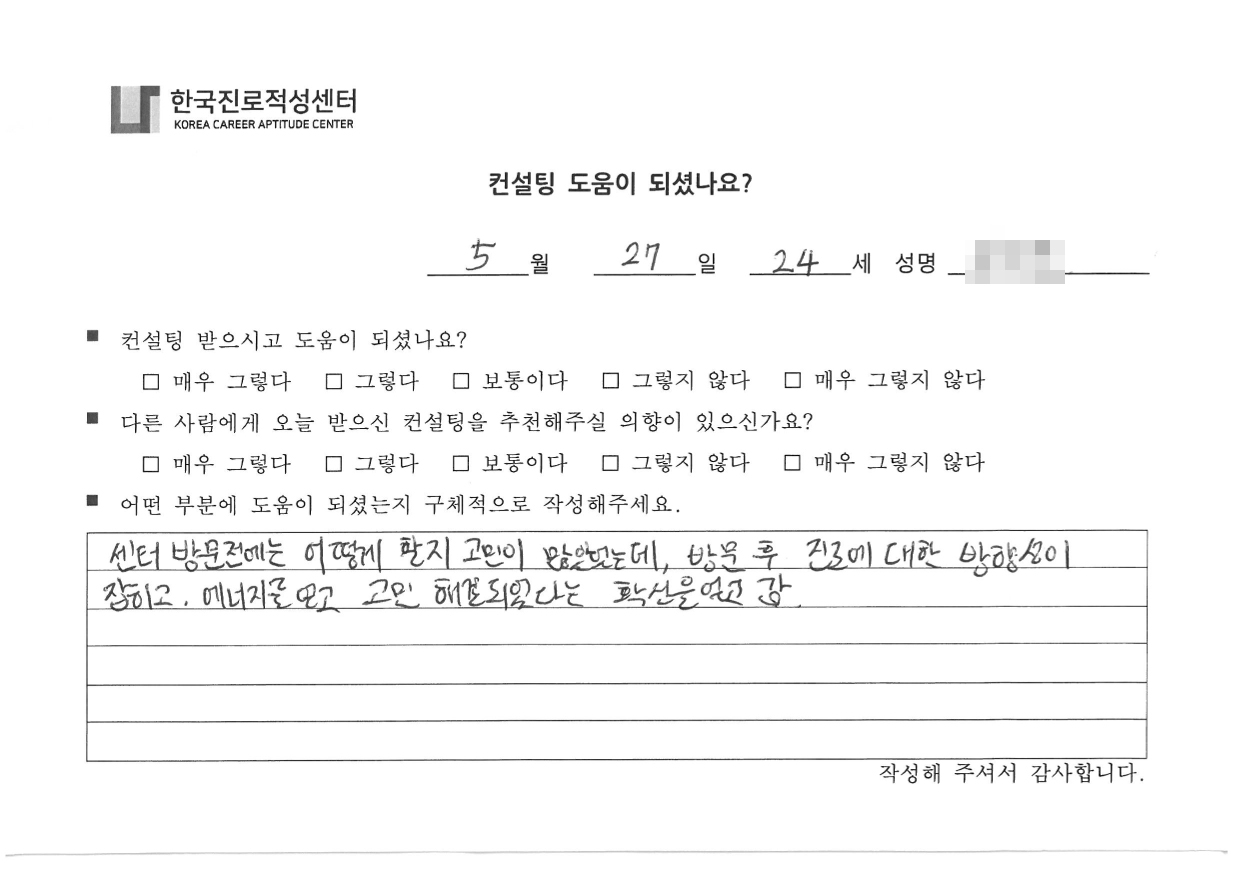 한국진로적성센터
KOREA CAREER APTITUDE CENTER
컨설팅 도움이 되셨나요?
5 월 27 일 24 세 성명
■ 컨설팅 받으시고 도움이 되셨나요?
□ 매우 그렇다 □ 그렇다 □ 보통이다 □ 그렇지 않다 □ 매우 그렇지 않다
■ 다른 사람에게 오늘 받으신 컨설팅을 추천해주실 의향이 있으신가요?
□ 매우 그렇다 □ 그렇다 □ 보통이다 □ 그렇지 않다 □ 매우 그렇지 않다
■ 어떤 부분에 도움이 되셨는지 구체적으로 작성해주세요.
센터 방문전에는 어떻게 할지 고민이 많았었는데, 방문 후 진로에 대한 방향성이
잡히고. 에너지를 얻고 고민 해결되있다는 확신을얻고 감.
작성해 주셔서 감사합니다.